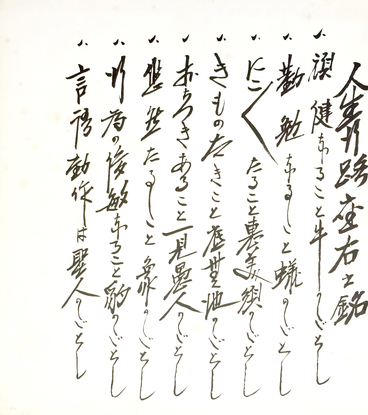 人生行路座右之銘
一、頑健なること牛のごとし
一、勤勉なること蟻のごとし
一、にこ〱たること のごとし
一、きもの きこと のごとし
一、おちつきあること一見愚人のごとし
一、悠然たること象のごとし
一、行為の俊敏なること豹のごとし
一、言語動作は聖人のごとし